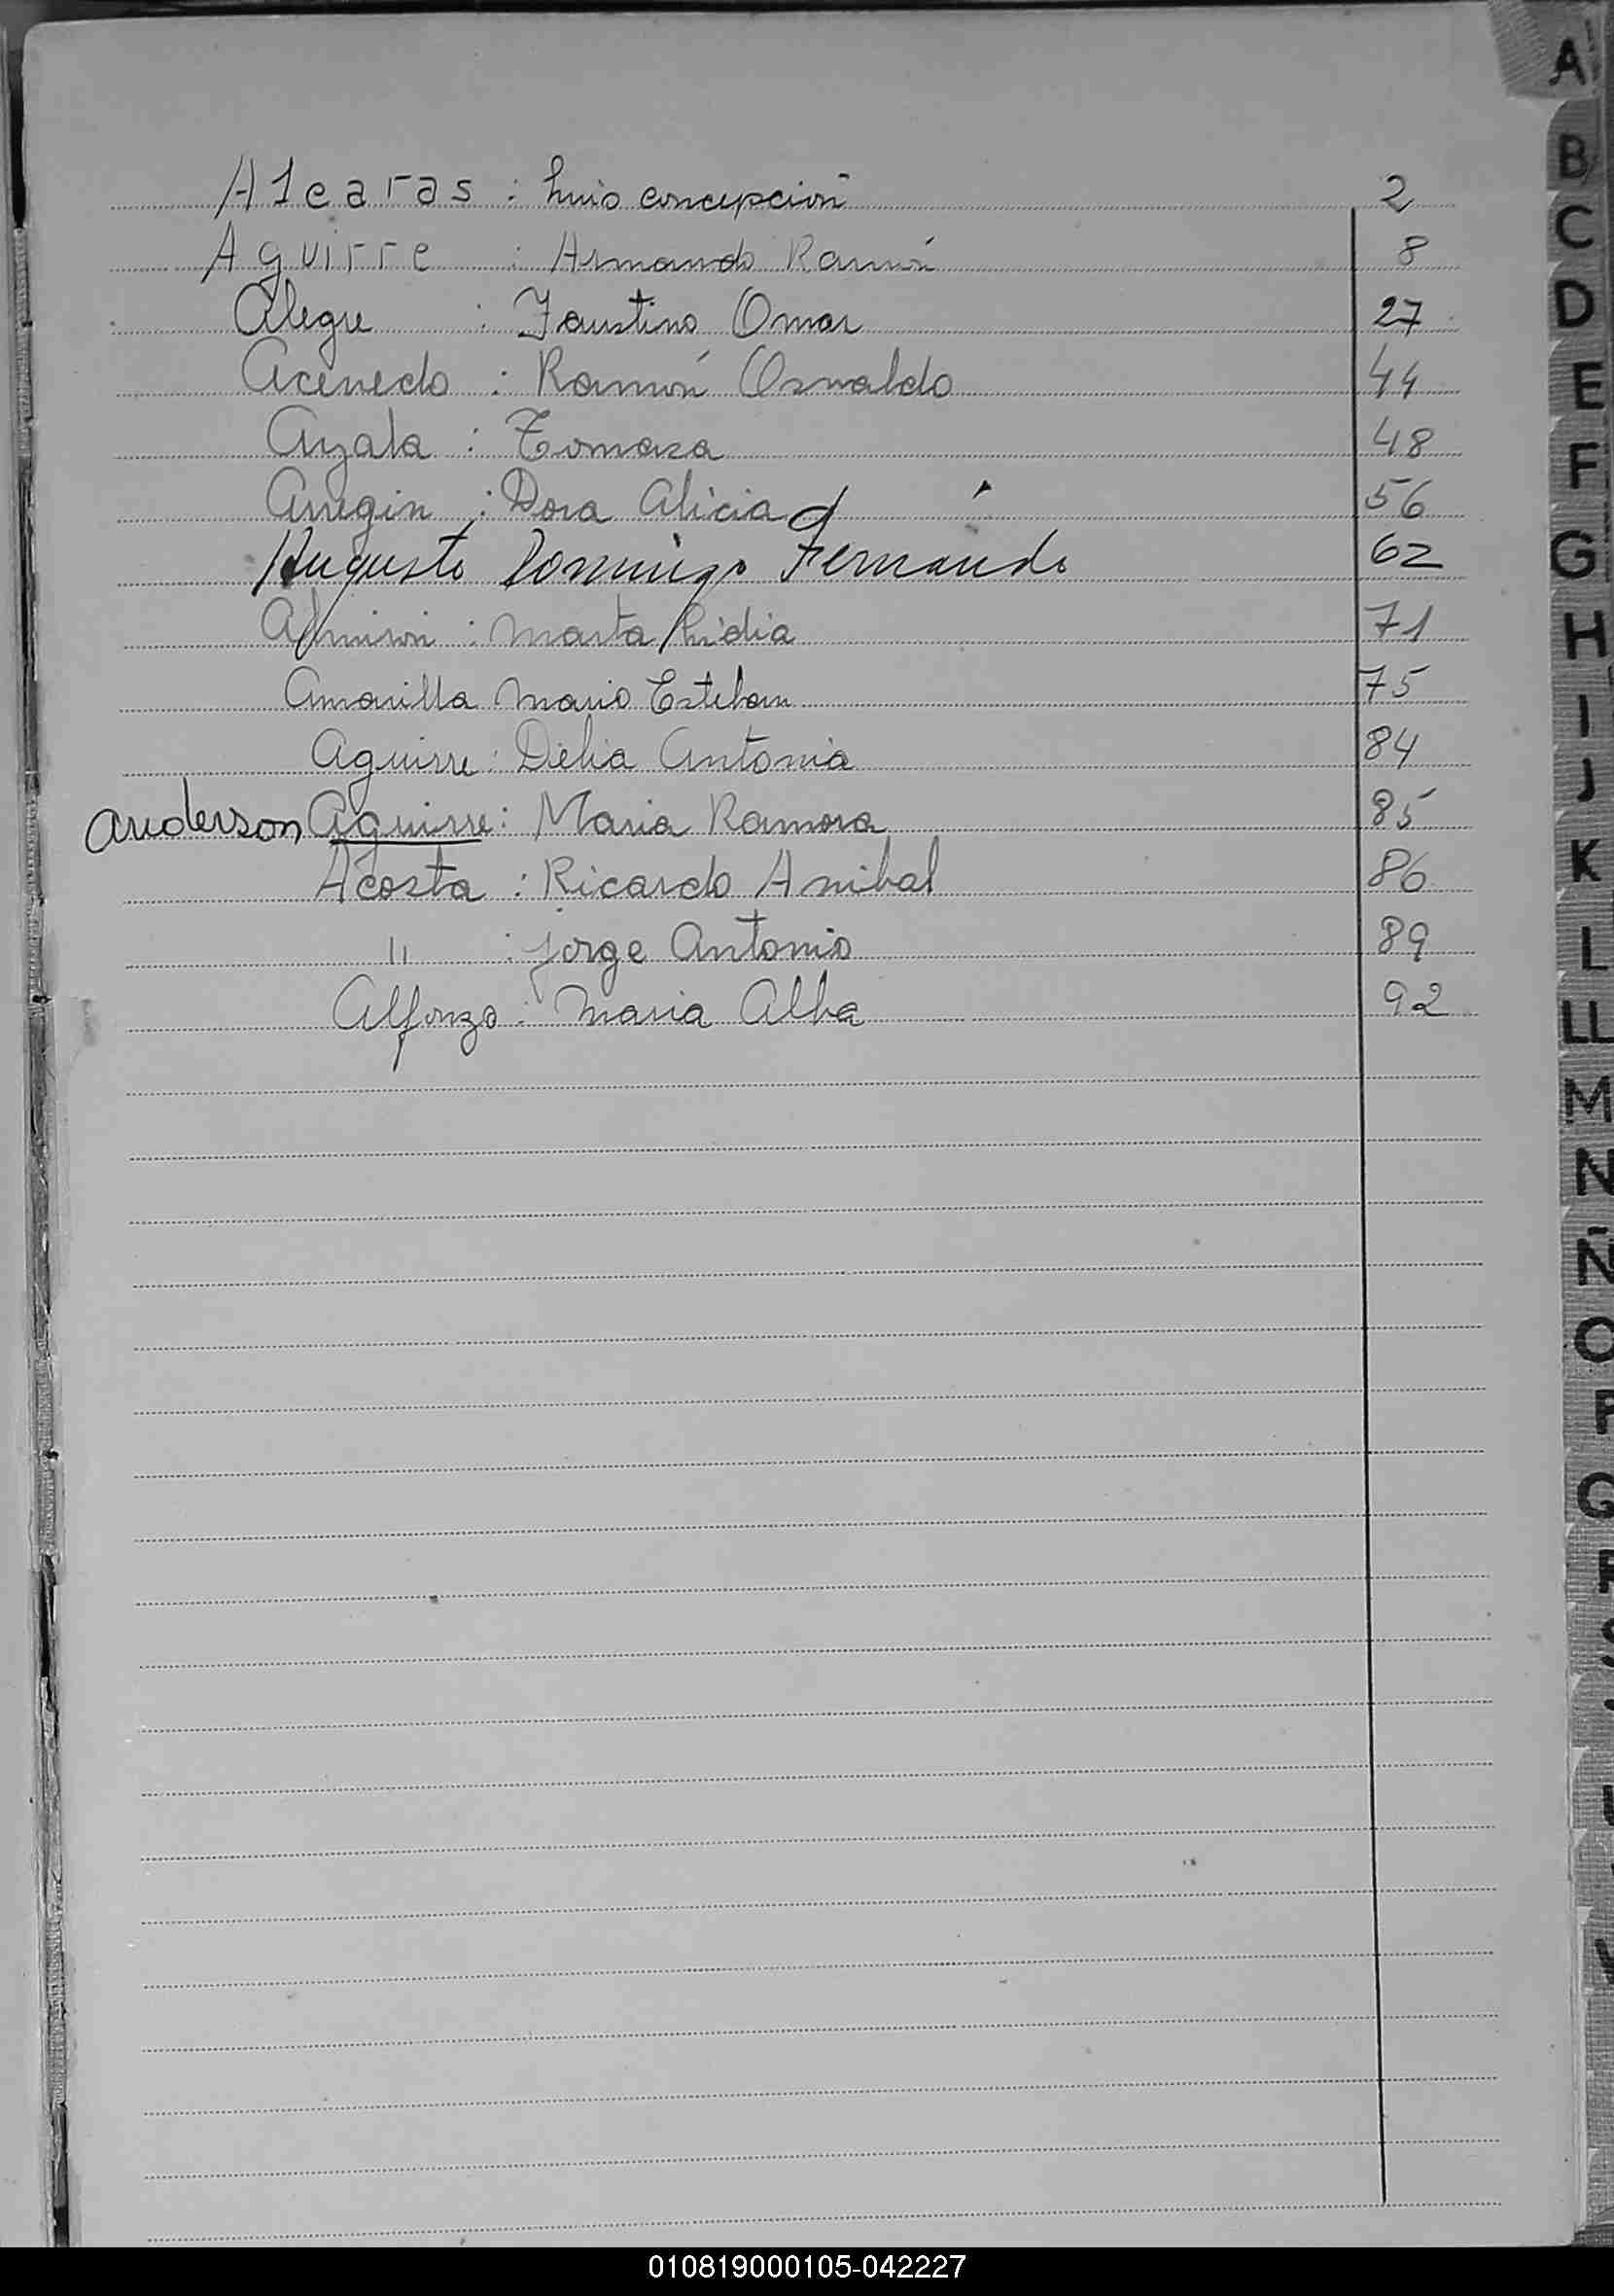 Alcaras : Luis concepción 2
Aguirre : Armando Ramón 8
Alegre : Faustino Omar 27
Acevedo : Ramón Osvaldo 44
Ayala : Tomasa 48
Arregin : Dora Alicia 56
Augusto Domingo Fernando 62
: Marta Lidia 71
Amarilla Mario Esteban 75
Aguirre : Delia Antonia 84
Anderson Aguirre : Maria Ramona 85
Acosta : Ricardo Anibal 86
" : Jorge Antonio 89
Alfonzo : Maria Alba 92
A
B
C
D
E
F
G
H
I
J
K
L
LL
M
N
Ñ
O
P
Q
R
S
010819000105-042227